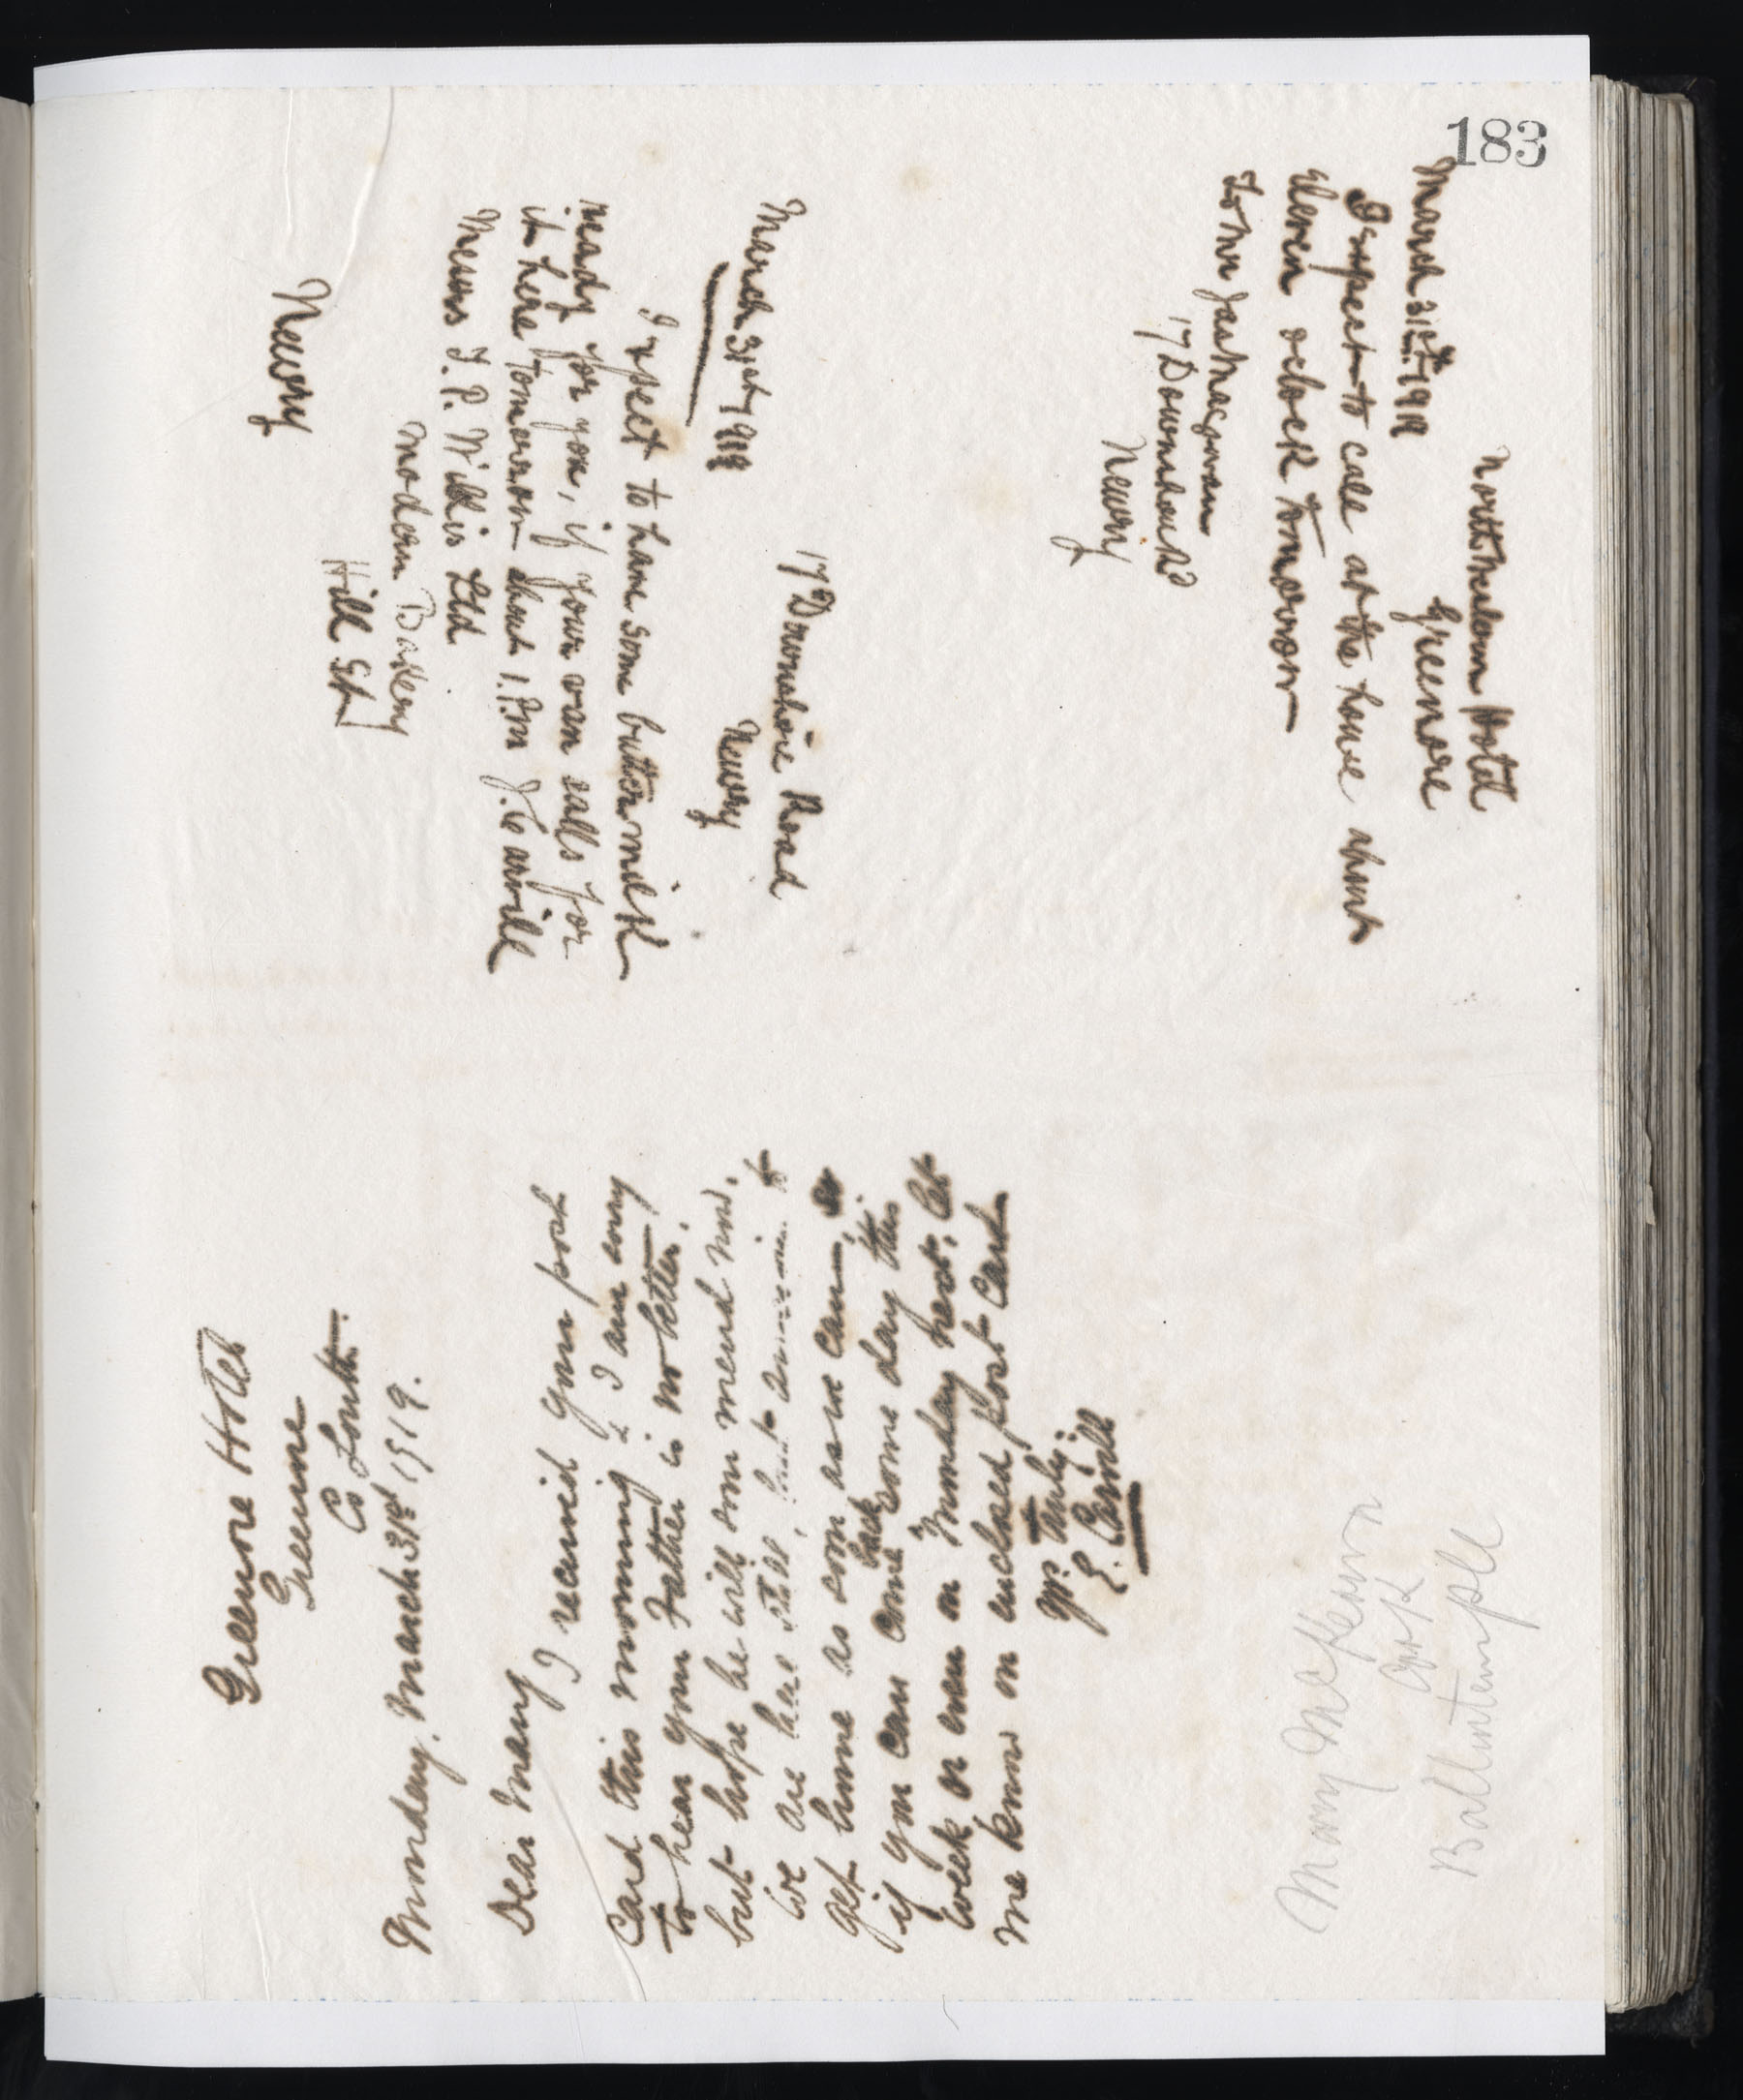 183
North Western Hotel
Greenore
March 31st 1919
I expect to call at the house about
eleven oclock tomorrow
To Mr Jas Magowan
17 Downshire Rd
Newry
17 Downshire Road
Newry
March 31st 1919
I expect to have some buttermilk
ready for you, if your van calls for
it here tomorrow about 1.Pm J. Carvill
Messrs T. P. Willis Ltd
Modern Bakery
Hill St
Newry
Greenore Hotel
Greenore
Co Louth.
Monday. March 31st 1919.
Dear Mary
I received your post
Card this morning & I am sorry
to hear your Father is no better.
but hope he will soon mend now.
We are here still, but to
get home as soon as we can,
if you can come back some day this
week or even on Monday next, let
me know on enclosed Post Card
Yrs truly.
E. Carvill
Mary McKeown
Ballintemple